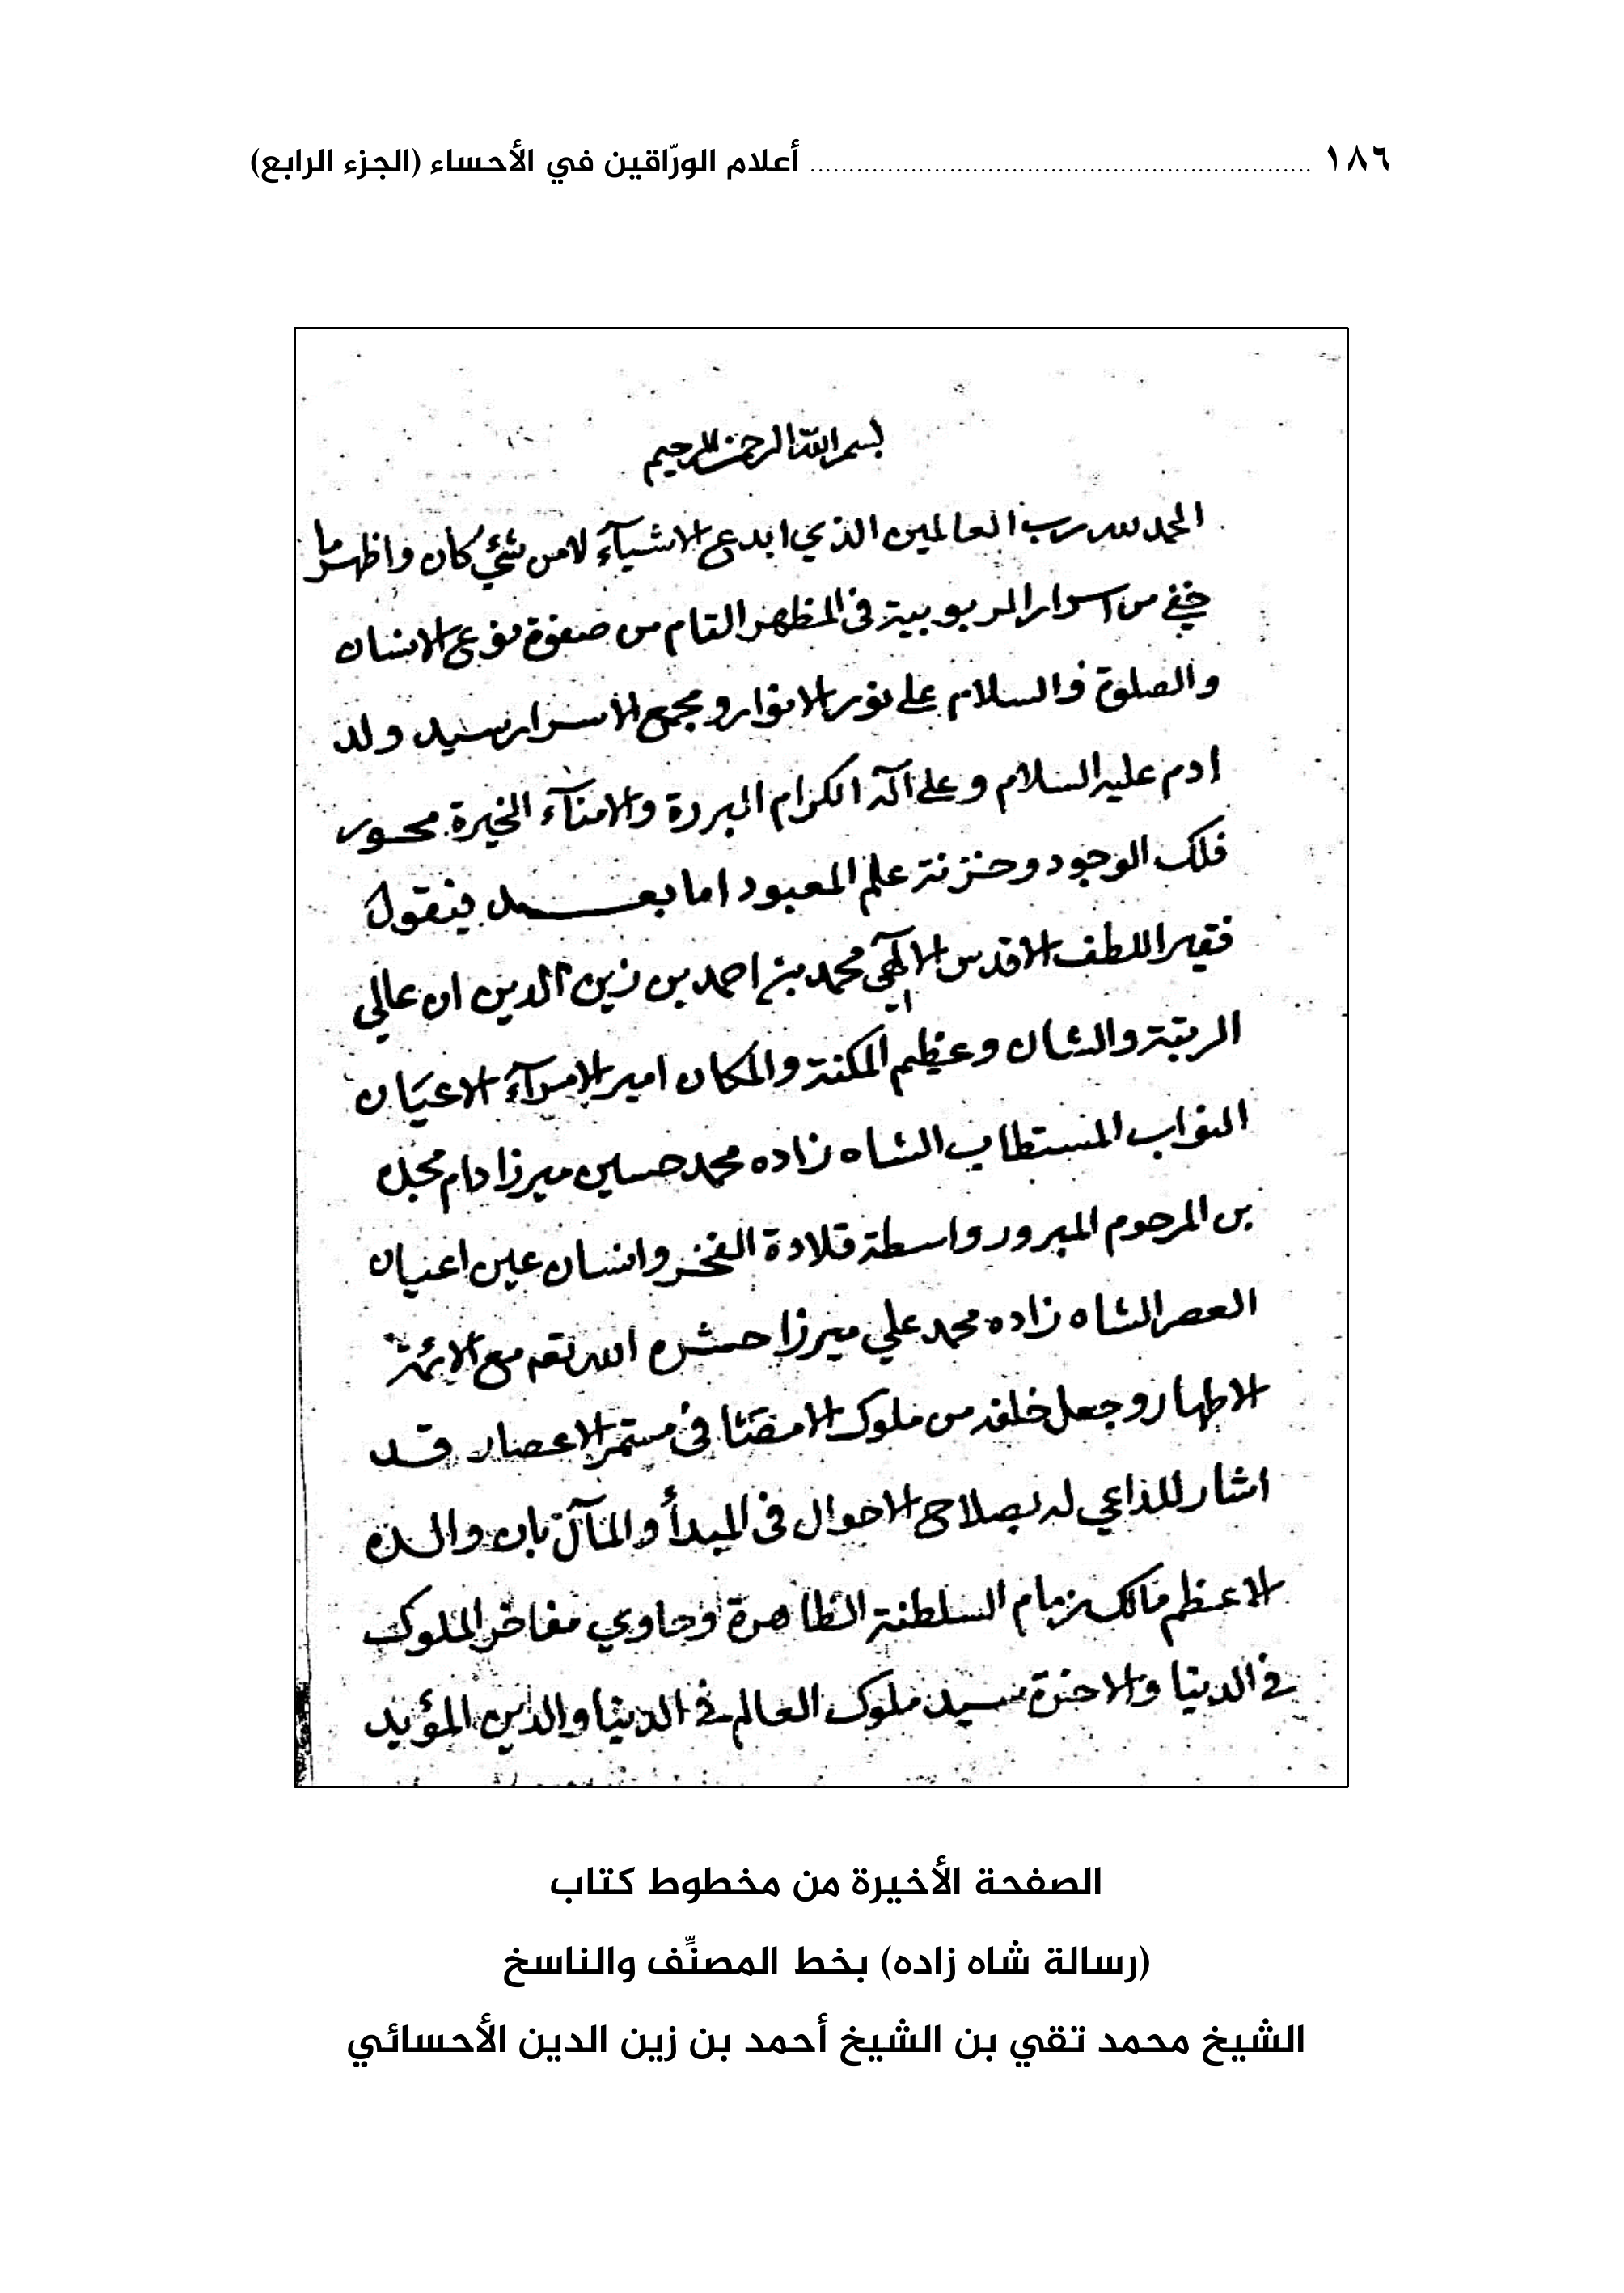 ١٨٦ ........................................ أعلام الورّاقين في الأحساء (الجزء الرابع)
بسم الله الرحمن الرحيم
الحمد لله رب العالمين الذي ابدع الاشيآء لا من شئ كان واظهر ما
خفي من اسرار الربوبية في المظهر التام من صفوة نوع الانسان
والصلوة والسلام على نور الانوار ومجمع الاسرار سيد ولد
ادم عليه السلام وعلى آله الكرام البررة والامنآء الخيرة محور
فلك الوجود وخزنة علم المعبود اما بعد فيقول
فقير اللطف الاقدس الالهي محمد بن احمد بن زين الدين ان عالي
الرتبة والشان وعظيم المكنة والمكان امير الامرآء الاعيان
النواب المستطاب الشاه زاده محمد حسين ميرزا دام مجده
بن المرحوم المبرور واسطة قلادة الفخر وانسان عين اعيان
العصر الشاه زاده محمد علي ميرزا حشره الله تعه مع الائمة
الاطهار وجعل خلفه من ملوك في مستمر الاعصار قد
اشار للداعي له بصلاح الاحوال في المبدأ والمآل بان والده
الاعظم مالك زمام السلطنة الظاهرة وحاوي مفاخر الملوك
في الدنيا والاخرة سيد ملوك العالم في الدنيا والدين المؤيد
الصفحة الأخيرة من مخطوط كتاب
(رسالة شاه زاده) بخط المصنِّف والناسخ
الشيخ محمد تقي بن الشيخ أحمد بن زين الدين الأحسائي